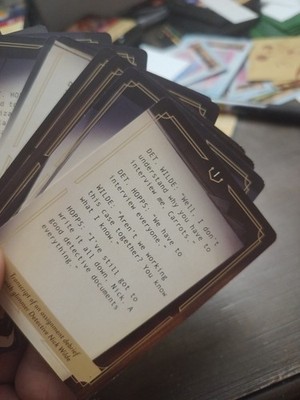 DET. WILDE: "Well, I don't
understand why you have to
interview me, Carrots."
DET. HOPPS: "We have to
interview everyone."
WILDE: "Aren't we working
this case together? You know
what I know."
HOPPS: "I've still got to
write it all down, Nick. A
good detective documents
everything."
Transcript of an assignment debrief
Detective Nick Wilde